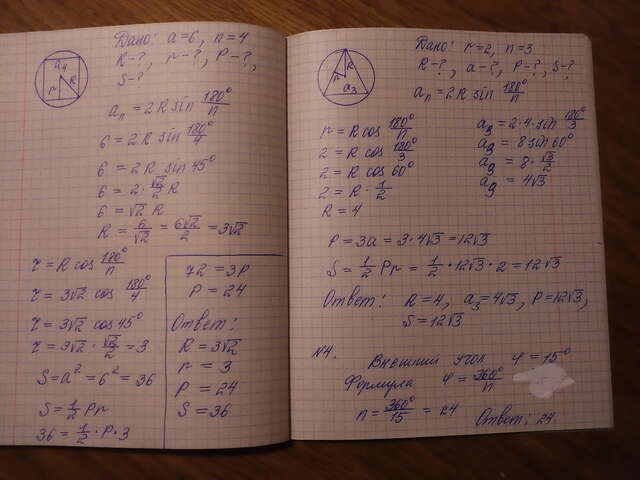 Дано: a=6, n=4
R-?, r-?, P-?,
S-?
a₄
r R
aₙ = 2R sin 180°/n
6 = 2R sin 180°/4
6 = 2R sin 45°
6 = 2 · √2/2 R
6 = √2 R
R = 6/√2 = 6√2/2 = 3√2
r = R cos 180°/n
r = 3√2 cos 180°/4
r = 3√2 cos 45°
r = 3√2 · √2/2 = 3
S = a² = 6² = 36
S = 1/2 Pr
36 = 1/2 · P · 3
72 = 3P
P = 24
Ответ:
R = 3√2
r = 3
P = 24
S = 36
Дано: r=2, n=3
R-?, a-?, P-?, S-?
r R
a₃
aₙ = 2R sin 180°/n
r = R cos 180°/n
2 = R cos 180°/3
2 = R cos 60°
2 = R · 1/2
R = 4
a₃ = 2·4·sin 180°/3
a₃ = 8 sin 60°
a₃ = 8 · √3/2
a₃ = 4√3
P = 3a = 3 · 4√3 = 12√3
S = 1/2 Pr = 1/2 · 12√3 · 2 = 12√3
Ответ: R = 4, a₃ = 4√3, P = 12√3,
S = 12√3
№4.
Внешний угол φ = 15°
Формула φ = 360°/n
n = 360°/15 = 24 Ответ: 24